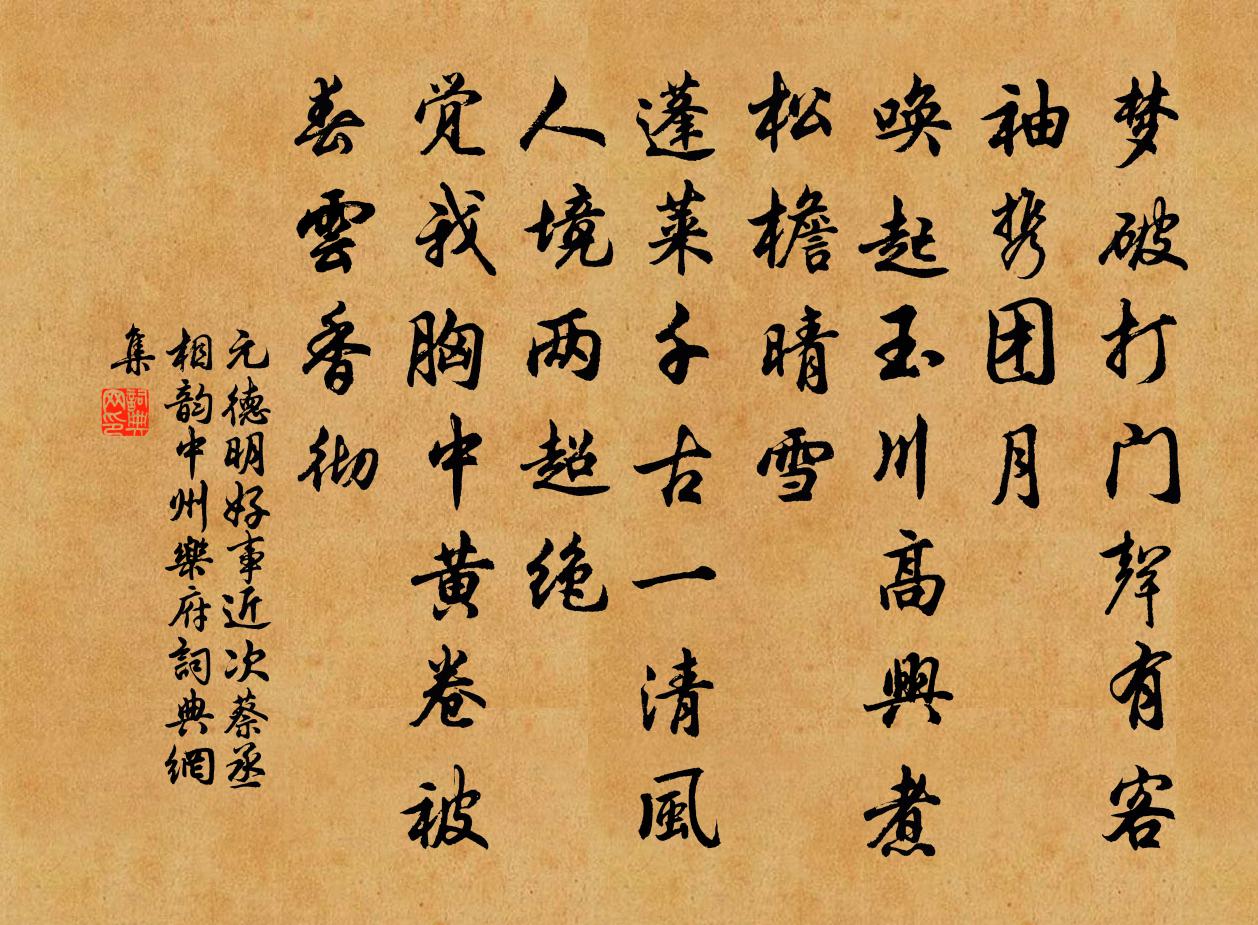 梦破打门声有客
袖携团月
唤起玉川高興煮
松檐晴雪
蓬莱千古一清風
人境两超绝
觉我胸中黄卷被
春雲香彻
元德明好事近次蔡丞
相韵中州樂府詞典網
集
詞典网印